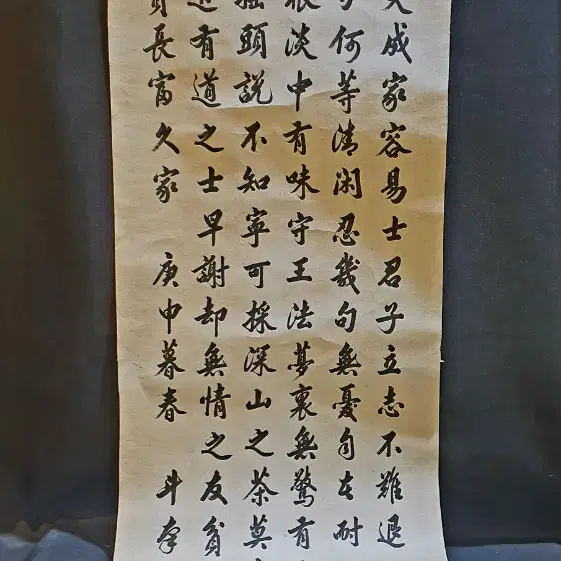 成家容易士君子立志不難退
何等清閑忍幾句無憂自在耐
根淡中有味守王法夢裏無驚有
搖頭說不知寧可採深山之茶莫
近有道之士早謝却無情之友貧
長富久家 庚申暮春 斗